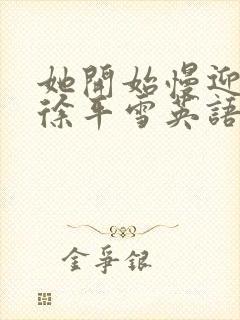 她開始慢迎
徐平雪英語
金爭銀